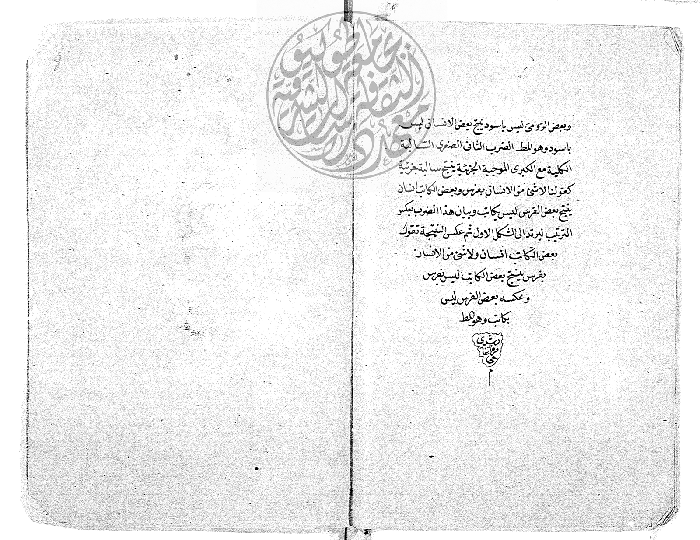 وبعض الرومى ليس باسود ينتج بعض الانسانى ليس
باسود وهو المط الضرب الثانى الصغرى السالبة
الكلية مع الكبرى الموجبة الجزئية ينتج سالبة جزئية
كقولنا لا شئ من الانسانى بفرس وبعض الكاتب انسان
ينتج بعض الفرس ليس بكاتب وبيان هذا الضرب بعكس
الترتيب ليرتد الى الشكل الاول ثم عكس النتيجة تقول
بعض الكاتب انسان ولا شئ من الانسان
بفرس ينتج بعض الكاتب ليس بفرس
وعكسه بعض الفرس ليس
بكاتب وهو المط